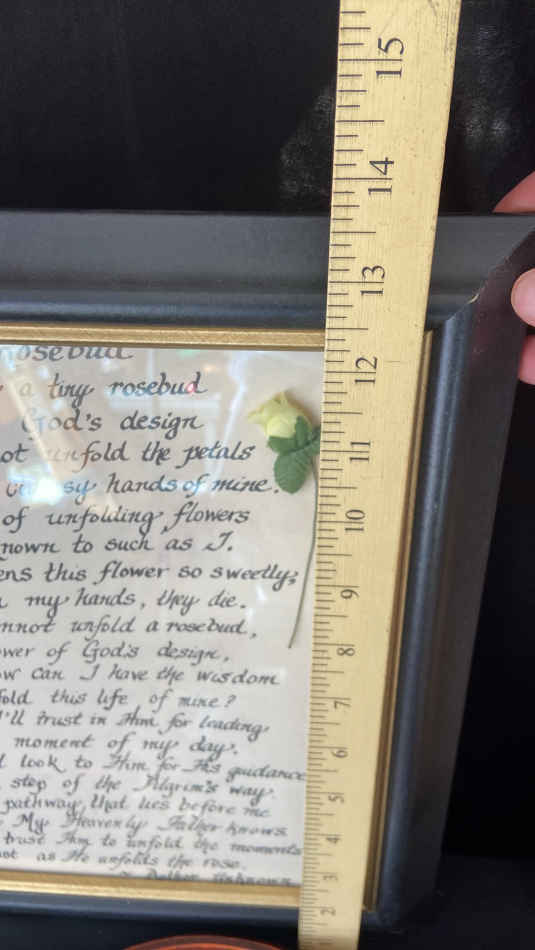 rosebud
a tiny rosebud
God's design
ot unfold the petals
hands of mine.
of unfolding flowers
nown to such as I.
ens this flower so sweetly;
my hands, they die.
nnot unfold a rosebud,
wer of God's design,
ow can I have the wisdom
fold this life of mine?
I'll trust in Him for leading
moment of my day.
look to Him for His guidance
step of the Pilgrim's way.
pathway that lies before me
My Heavenly Father knows
trust Him to unfold the moments
ot as He unfolds the rose.
Author Unknown
15
14
13
12
11
10
9
8
7
6
5
4
3
2